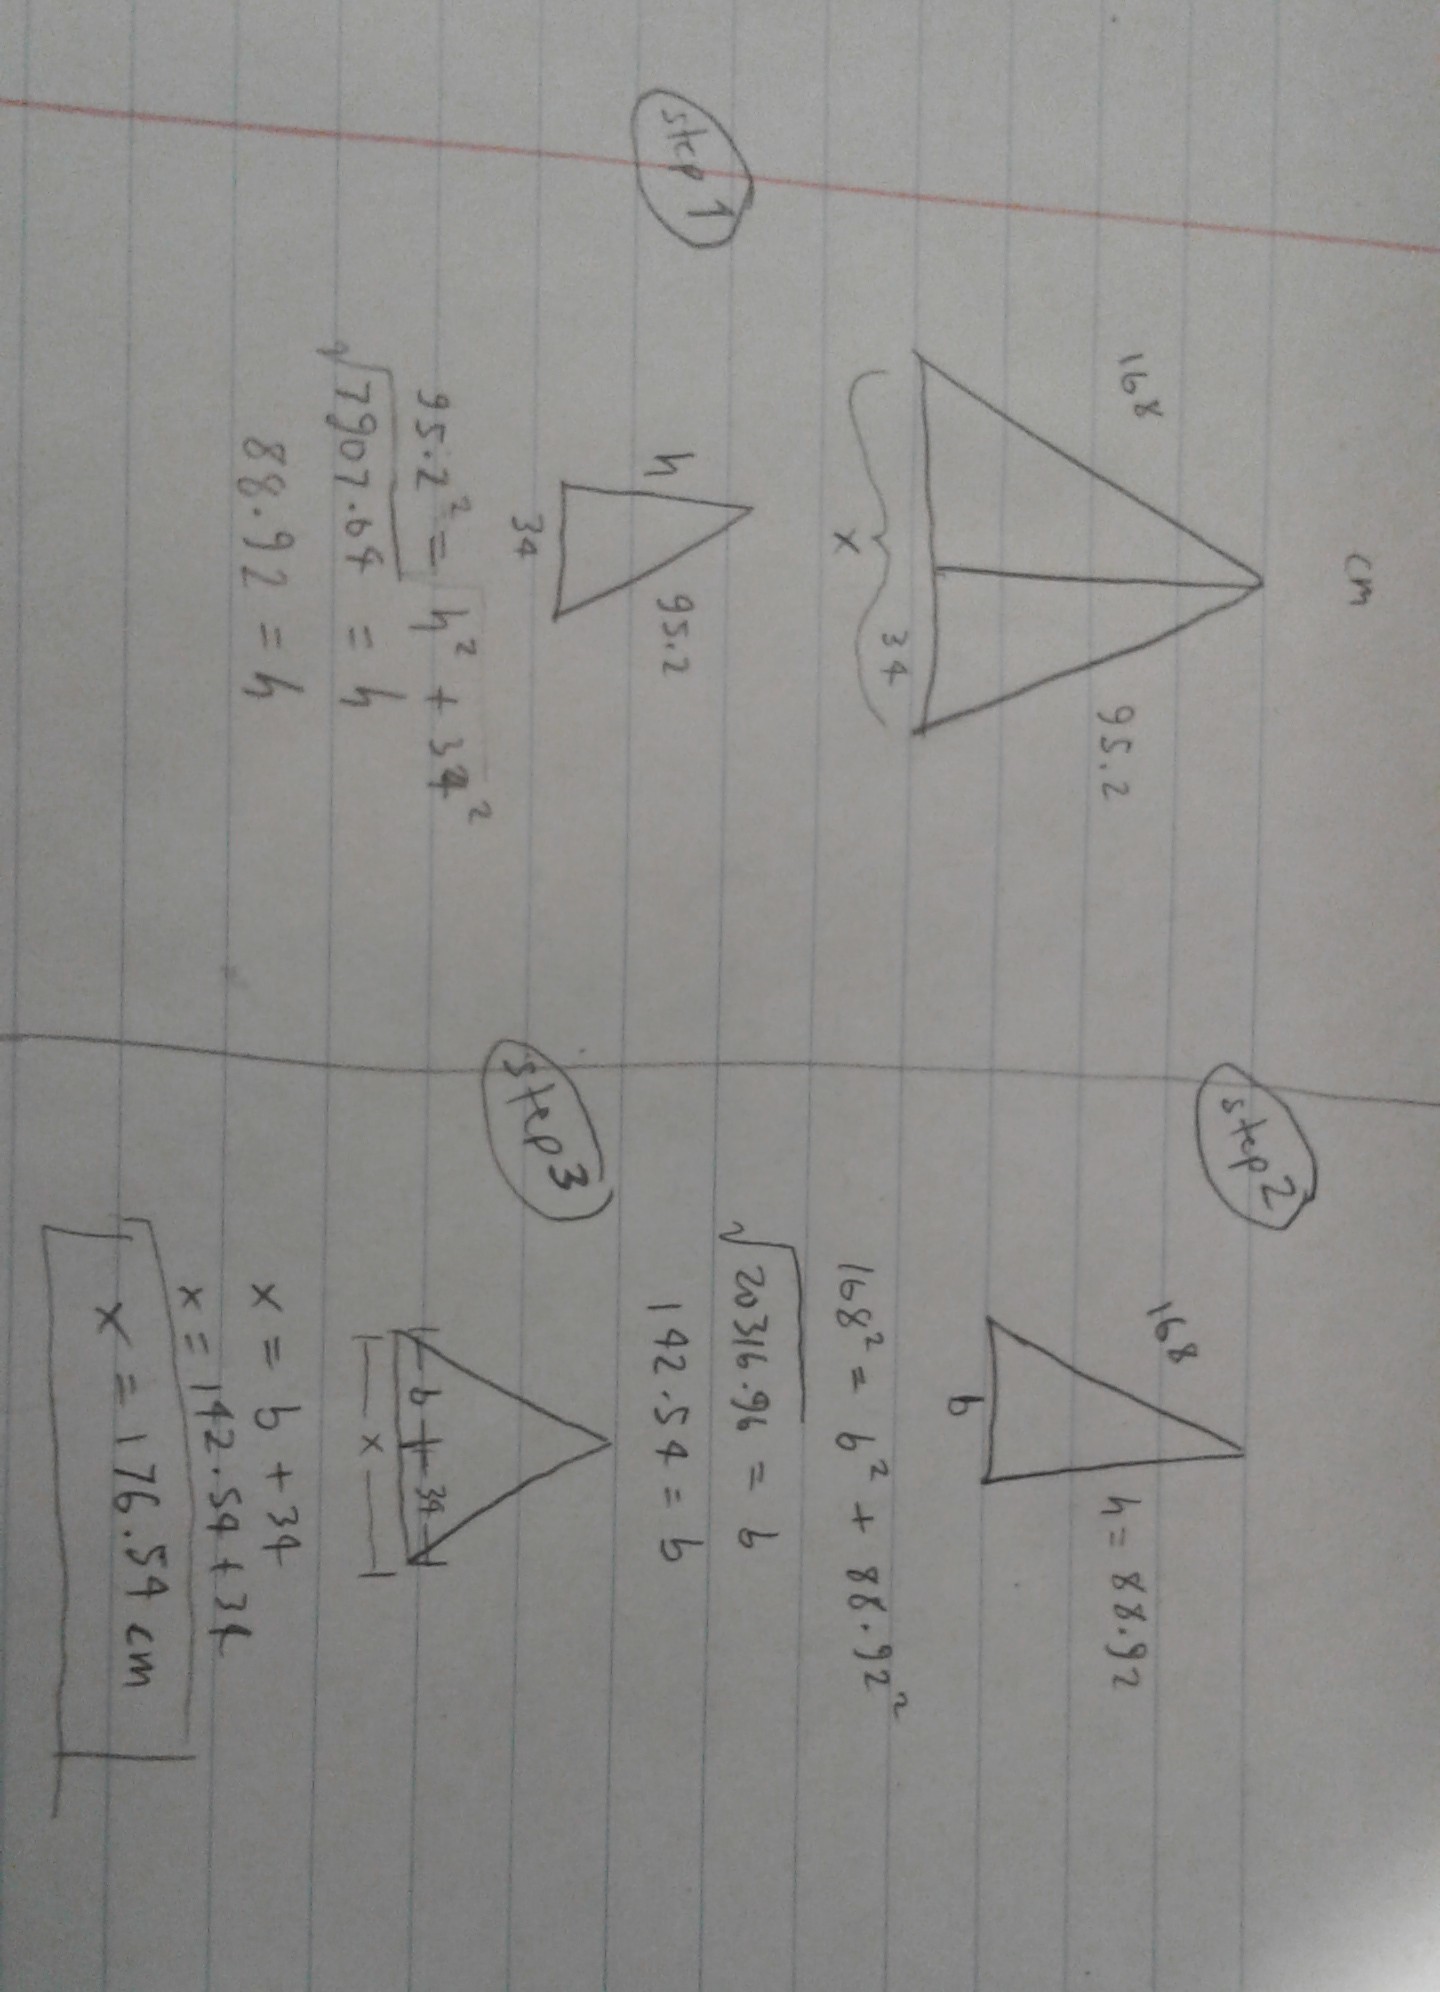 cm
168
95.2
34
x
step 1
h
95.2
34
95.2² = h² + 34²
√7907.64 = h
88.92 = h
step 2
168
h = 88.92
b
168² = b² + 88.92²
√20316.96 = b
142.54 = b
step 3
b + 34
x
x = b + 34
x = 142.54 + 34
x = 176.54 cm